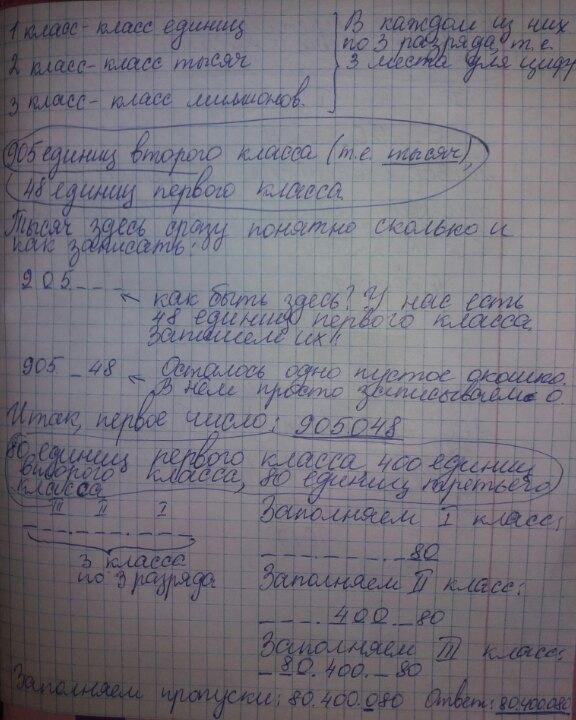 1 класс-класс единиц
2 класс-класс тысяч
3 класс-класс миллионов.
В каждом из них
по 3 разряда, т.е.
3 места для цифр
905 единиц второго класса (т.е. тысяч),
48 единиц первого класса.
Тысяч здесь сразу понятно сколько и
как записать:
905 _ _ _
как быть здесь? У нас есть
48 единиц первого класса.
Запишем их!!
905 _ 48
Осталось одно пустое окошко.
В нем просто записываем 0.
Итак, первое число: 905048
80 единиц первого класса, 400 единиц
второго класса, 80 единиц третьего
класса
III II I
_ _ _ . _ _ _ . _ _ _
3 класса
по 3 разряда
Заполняем I класс:
_ _ _ . _ _ _ . _ 80
Заполняем II класс:
_ _ _ . 400 . _ 80
Заполняем III класс:
_ 80.400. _ 80
Заполняем пропуски: 80.400.080 Ответ: 80.400.080